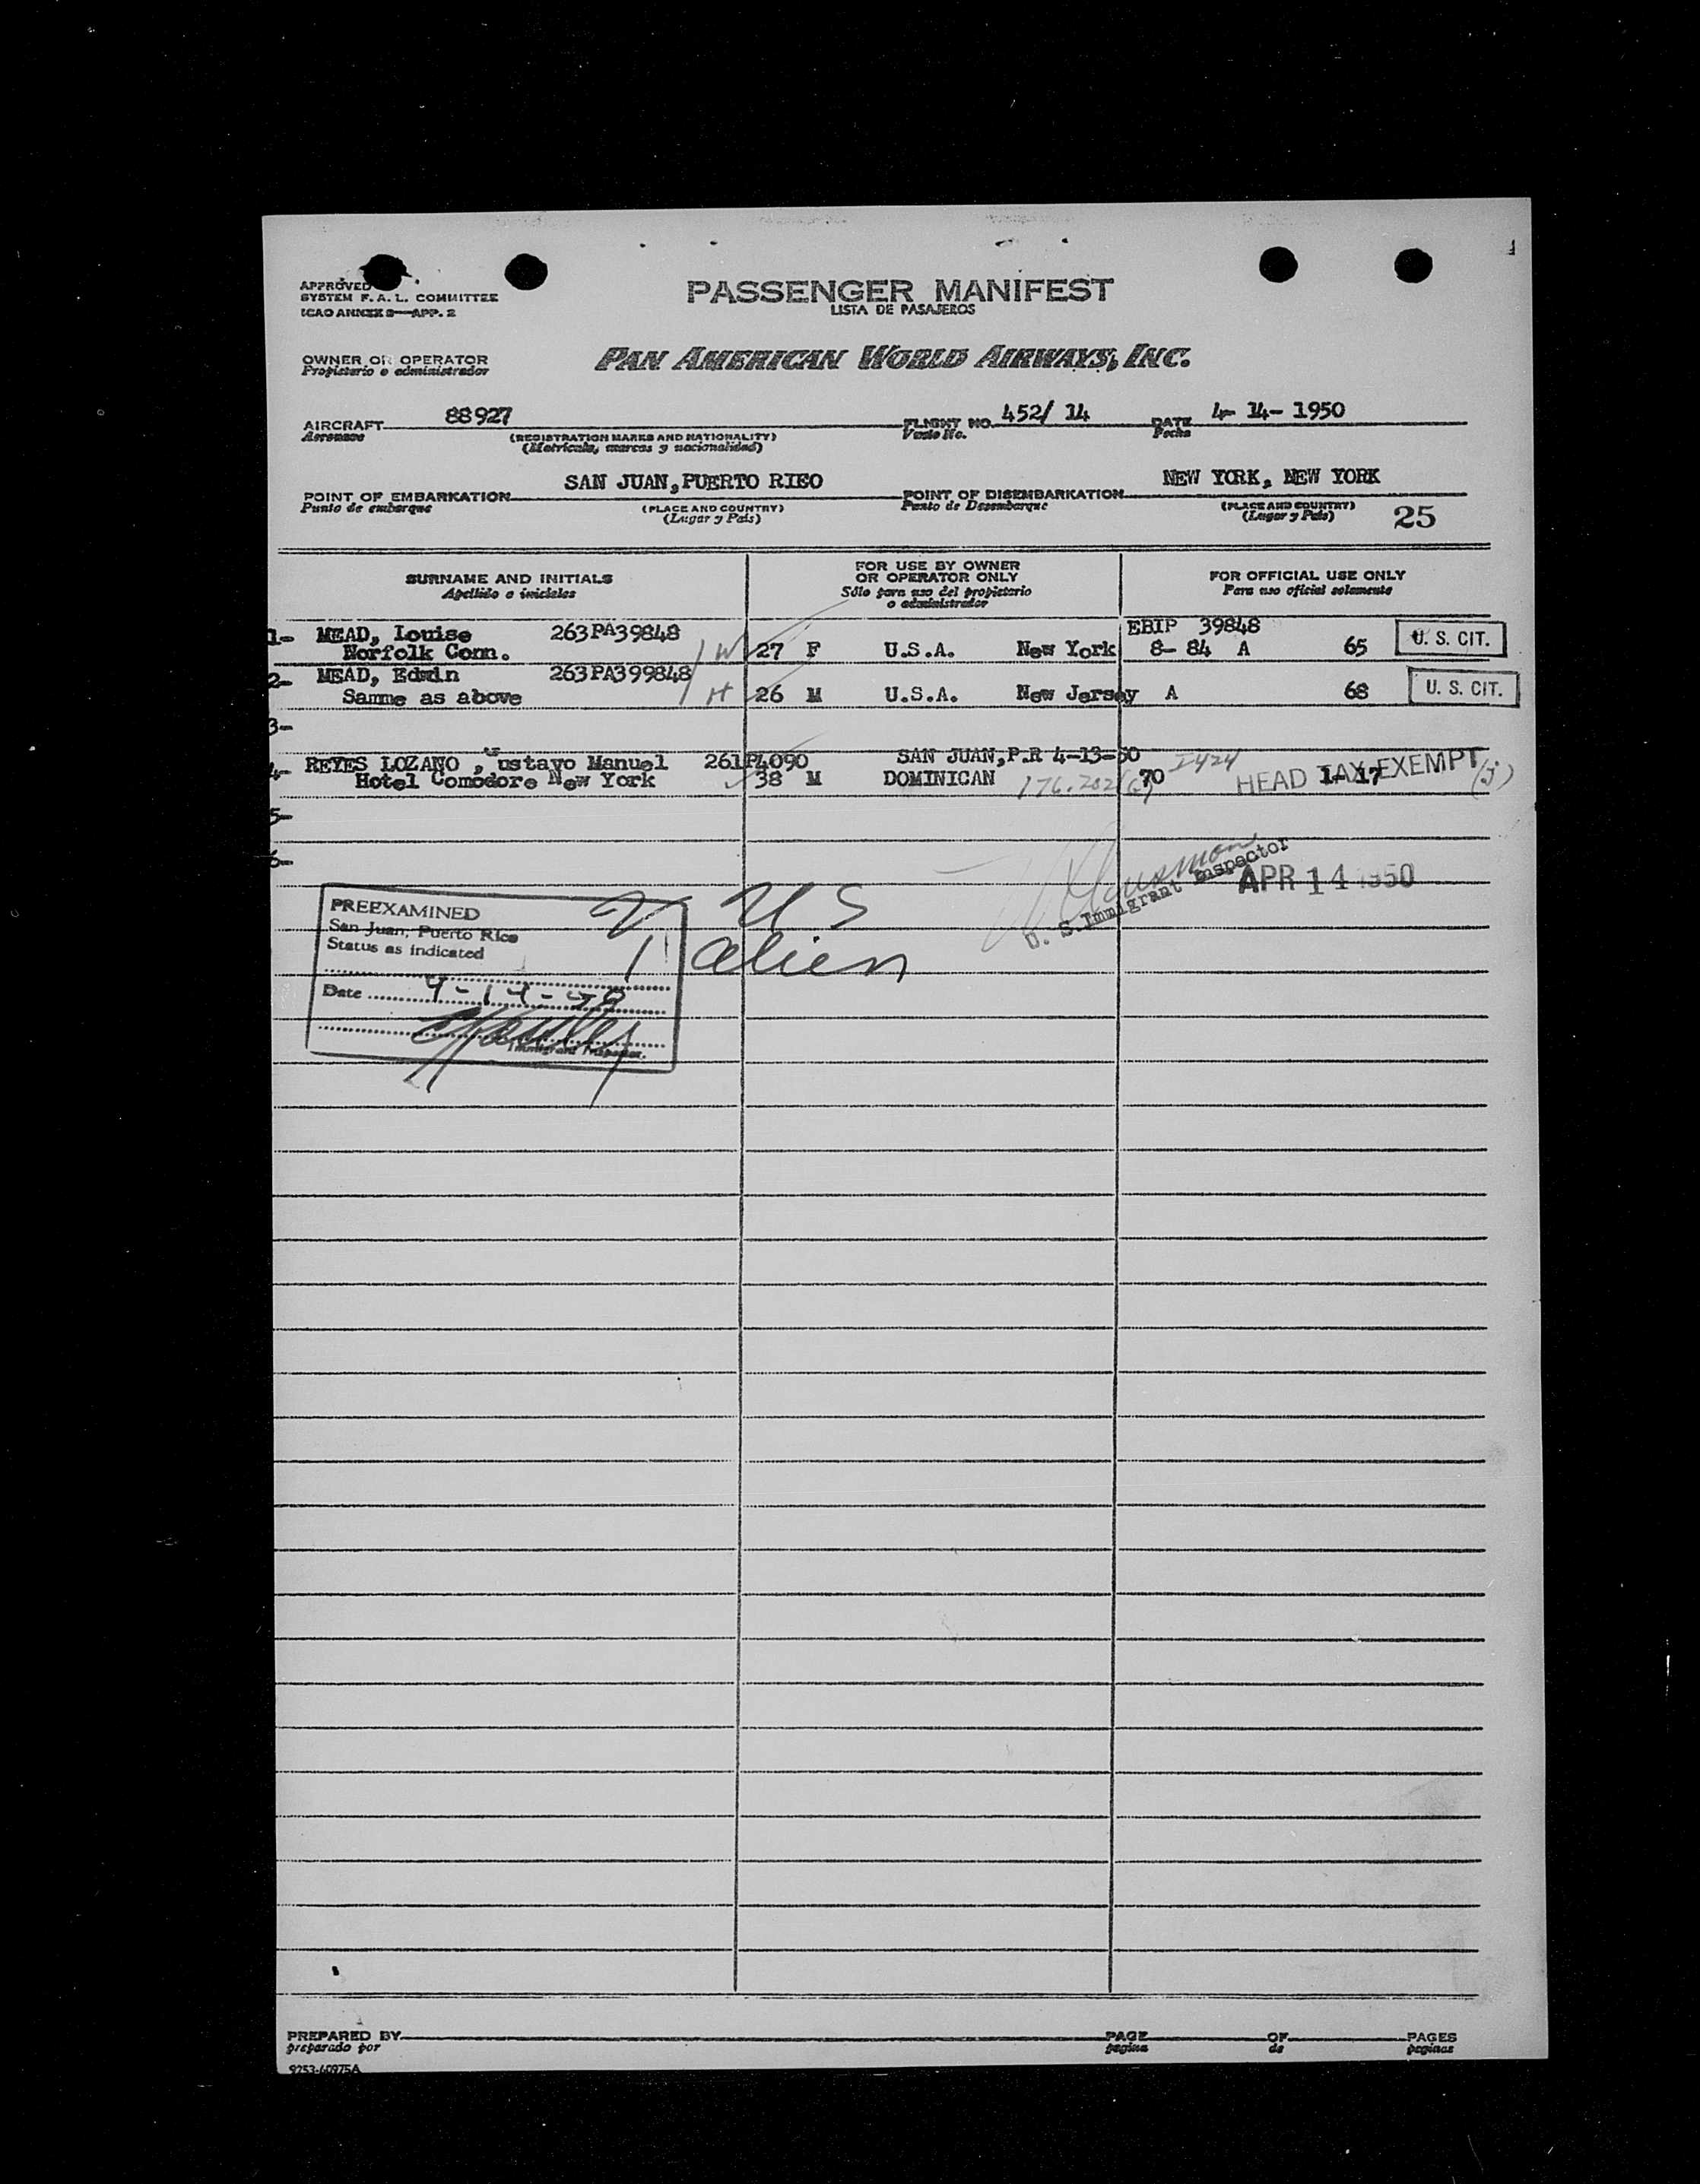 APPROVED
SYSTEM F. A. L. COMMITTEE
ICAO ANNEX 9—APP. 2
PASSENGER MANIFEST
LISTA DE PASAJEROS
OWNER OR OPERATOR
Propietario o administrador
PAN AMERICAN WORLD AIRWAYS, INC.
AIRCRAFT 88927 FLIGHT NO. 452/ 14 DATE 4- 14- 1950
Aeronave (REGISTRATION MARKS AND NATIONALITY) Vuelo No. Fecha
(Matrícula, marcas y nacionalidad)
POINT OF EMBARKATION SAN JUAN,PUERTO RICO POINT OF DISEMBARKATION NEW YORK, NEW YORK
Punto de embarque (PLACE AND COUNTRY) Punto de Desembarque (PLACE AND COUNTRY)
(Lugar y País) (Lugar y País) 25
SURNAME AND INITIALS
Apellido e iniciales
FOR USE BY OWNER
OR OPERATOR ONLY
Sólo para uso del propietario
o administrador
FOR OFFICIAL USE ONLY
Para uso oficial solamente
1- MEAD, Louise 263PA39848 EBIP 39848
Norfolk Conn. W 27 F U.S.A. New York 8- 84 A 65 U. S. CIT.
2- MEAD, Edwin 263PA399848
Samme as above H 26 M U.S.A. New Jersey A 68 U. S. CIT.
3-
4- REYES LOZANO , ustavo Manuel 261P4090 SAN JUAN,P.R 4-13-50 2424
Hotel Comodore New York 38 M DOMINICAN 176.202(G) 70 HEAD TAX EXEMPT 1- 17 (J)
5-
6-
U. S. Immigrant Inspector
APR 14 1950
PREEXAMINED
San Juan, Puerto Rico
Status as indicated
2 US
1 alien
Date 4-14-50
Immigrant Inspector.
PREPARED BY PAGE OF PAGES
preparado por pagina de paginas
9253-60975A